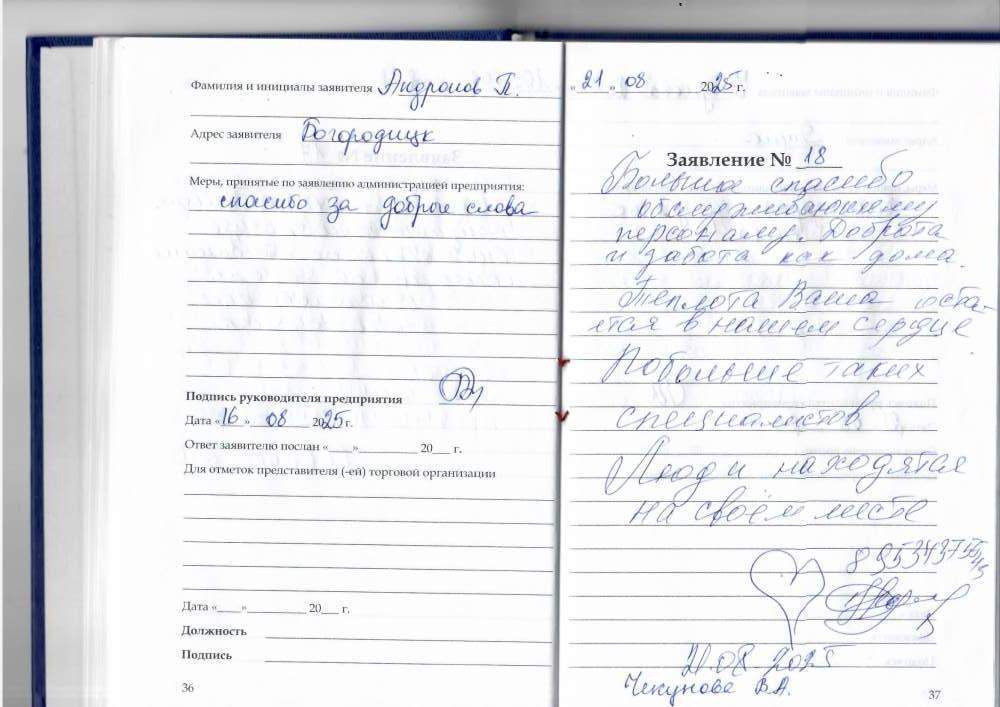 Фамилия и инициалы заявителя Андронов П.
Адрес заявителя Богородицк
Меры, принятые по заявлению администрацией предприятия:
спасибо за добрые слова
Подпись руководителя предприятия
Дата «16» 08 2025 г.
Ответ заявителю послан «___»________ 20___ г.
Для отметок представителя (-ей) торговой организации
Дата «___»________ 20___ г.
Должность
Подпись
36
«21» 08 2025 г.
Заявление № 18
Больша спасибо
обслуживающему
персоналу. Доброта
и забота как дома.
Теплота Ваша оста-
ётся в нашем сердце
Побольше таких
специалистов
Люди находятся
на своём месте
21.08.2025
Чекунова В.А.
37